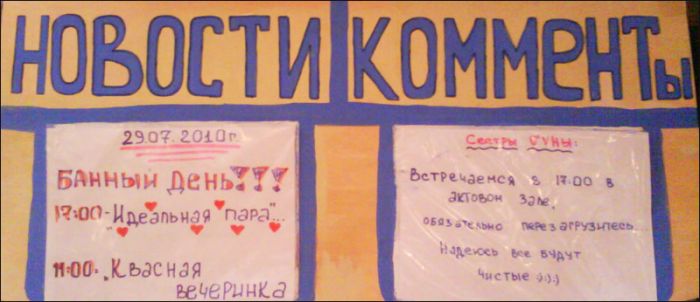 НОВОСТИ
КОММЕНТЫ
29.07.2010г.
БАННЫЙ ДЕНЬ!!!
17:00-"Идеальная пара"...
11:00: "Квасная
вечеринка
Сестры Суны:
Встречаемся в 17.00 в
актовом зале,
обязательно перезагрузитесь...
Надеюсь все будут
чистые :):):)